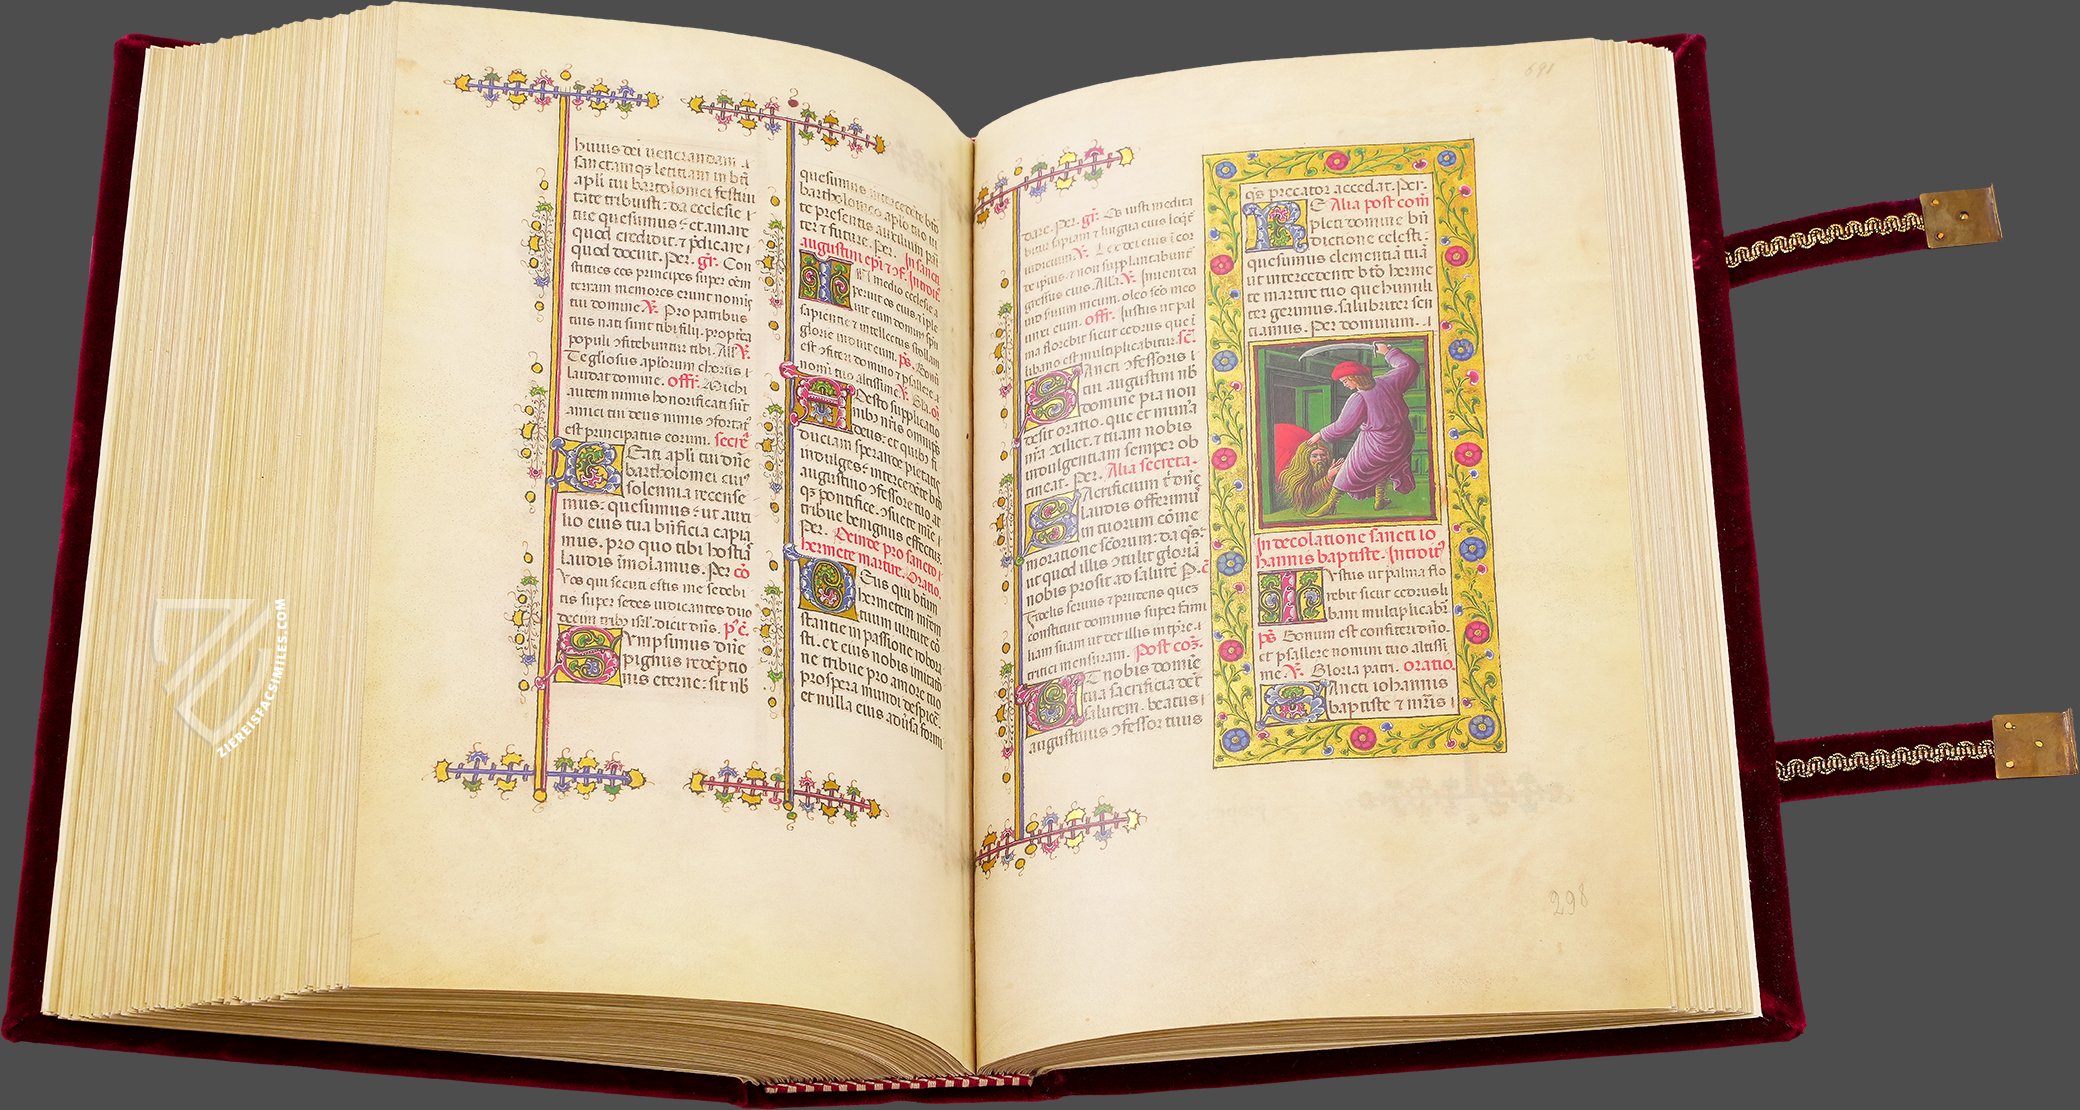 huius dei venerandam ⁊
sanctamqꝫ letitiam in bti
apli tui bartolomei festiui
tate tribuisti: da ecclesie t
tue quesumus: et amare
quod credidit. ⁊ p̄dicare ⁊
quod docuit. Per. gr̄. Con
stitues eos principes super oēm
terram memores erunt nomis
tui domine. ℣. Pro patribus
tuis nati sunt tibi filij. proptea
populi ɔfitebuntur tibi. All'. ℣.
Te gliosus aplorum chorus ⁊
laudat domine. offr̄. Michi
autem nimis honorificati sūt
amici tui deus nimis ɔfortat'
est principatus eorum. secre
Beati apli tui dn̄e
bartholomei cui'
solemnia recense
mus: quesumus: ut auxi
lio eius tua bn̄ficia capia
mus. pro quo tibi hostia
laudis imolamus. Per cō
Vos qui secuti estis me sedebi
tis super sedes iudicantes duo
decim tribꝫ isrl'. dicit dn̄s. p̄c̄.
Sumpsimus dn̄e
pignus redēptio
nis eterne: sit nb
quesumus intercedēte bto
bartholomeo aplo tuo vi
te presentis auxilium pari
ter ⁊ future. Per. In sancti
augustini epi ⁊ ɔf. Introit'.
In medio ecclesie a
peruit os eius. ⁊ iple
uit eum domin' spū
sapientie ⁊ intellectus stollam
glorie induit eum. ps. Bonū
est ɔfiteri domino ⁊ psallere
nomi tuo altissime. ℣. Gla. or
Adesto supplicatio
nibꝫ nr̄is omnips
deus: et quibꝫ fi
duciam sperande pietatis
indulges: intercedēte bto
augustino ɔfessore tuo at
qꝫ pontifice. ɔsuete mīe ⁊
tribue benignus effectuꝫ.
Per. Deinde pro sancto ⁊
hermete martire. Oratio.
Deus qui btum
hermetem mr̄em
tuum uirtute cō
stantie in passione robora
sti. ex eius nobis imitatō
ne tribue pro amore tuo
prospera mundi despice.
et nulla eius aduersa formi
691
dare. Per. gr̄. Os iusti medita
bitur sapiam ⁊ lingua eius loqet'
iudicium. ℣. Lex dei eius ī cor
de ipius. ⁊ non supplantabunt'
gressus eius. Alla. ℣. Inueni da
uid suum meum. oleo scō meo
unxi eum. offr̄. Iustus ut pal
ma florebit sicut cedrus que ī
libano est multiplicabitur. sc̄.
Sancti ɔfessoris ⁊
tui augustini nb
domine pia non
desit oratio. que et mun'a
nr̄a ɔciliet. ⁊ tuam nobis
indulgentiam semper ob
tineat. Per. Alia secreta.
Sacrificium t' dn̄e
laudis offerimus
in tuorum cōme
moratione sc̄orum: da qs:
ut quod illis ɔtulit gloriā
nobis prosit ad salutē. P. c̄
Fidelis seruus ⁊ prudens quez
constituit dominus super fami
liam suam ut det illis in tpr̄e ⁊
tritici mensuram. Post coꝫ.
Ut nobis domīe
tua sacrificia dēt
salutem. beatus ⁊
augustinus ɔfessor tuus
qs precator accedat. Per.
Alia post com
Repleti domine bn̄
dictione celesti:
quesumus clementiā tuā
ut intercedente bto herme
te martire tuo que humili
ter gerimus. salubriter sen
tiamus. Per dominum. ⁊
In decolatione sancti io
hannis baptiste. Introit'
Iustus ut palma flo
rebit sicut cedrus li
bani multiplicabr̄
ps̄ Bonum est confiteri dn̄o.
et psallere nomini tuo altissi
me. ℣. Gloria patri. oratio.
Sancti iohannis
baptiste ⁊ mr̄is ⁊
298
ZIEREISFACSIMILES.COM